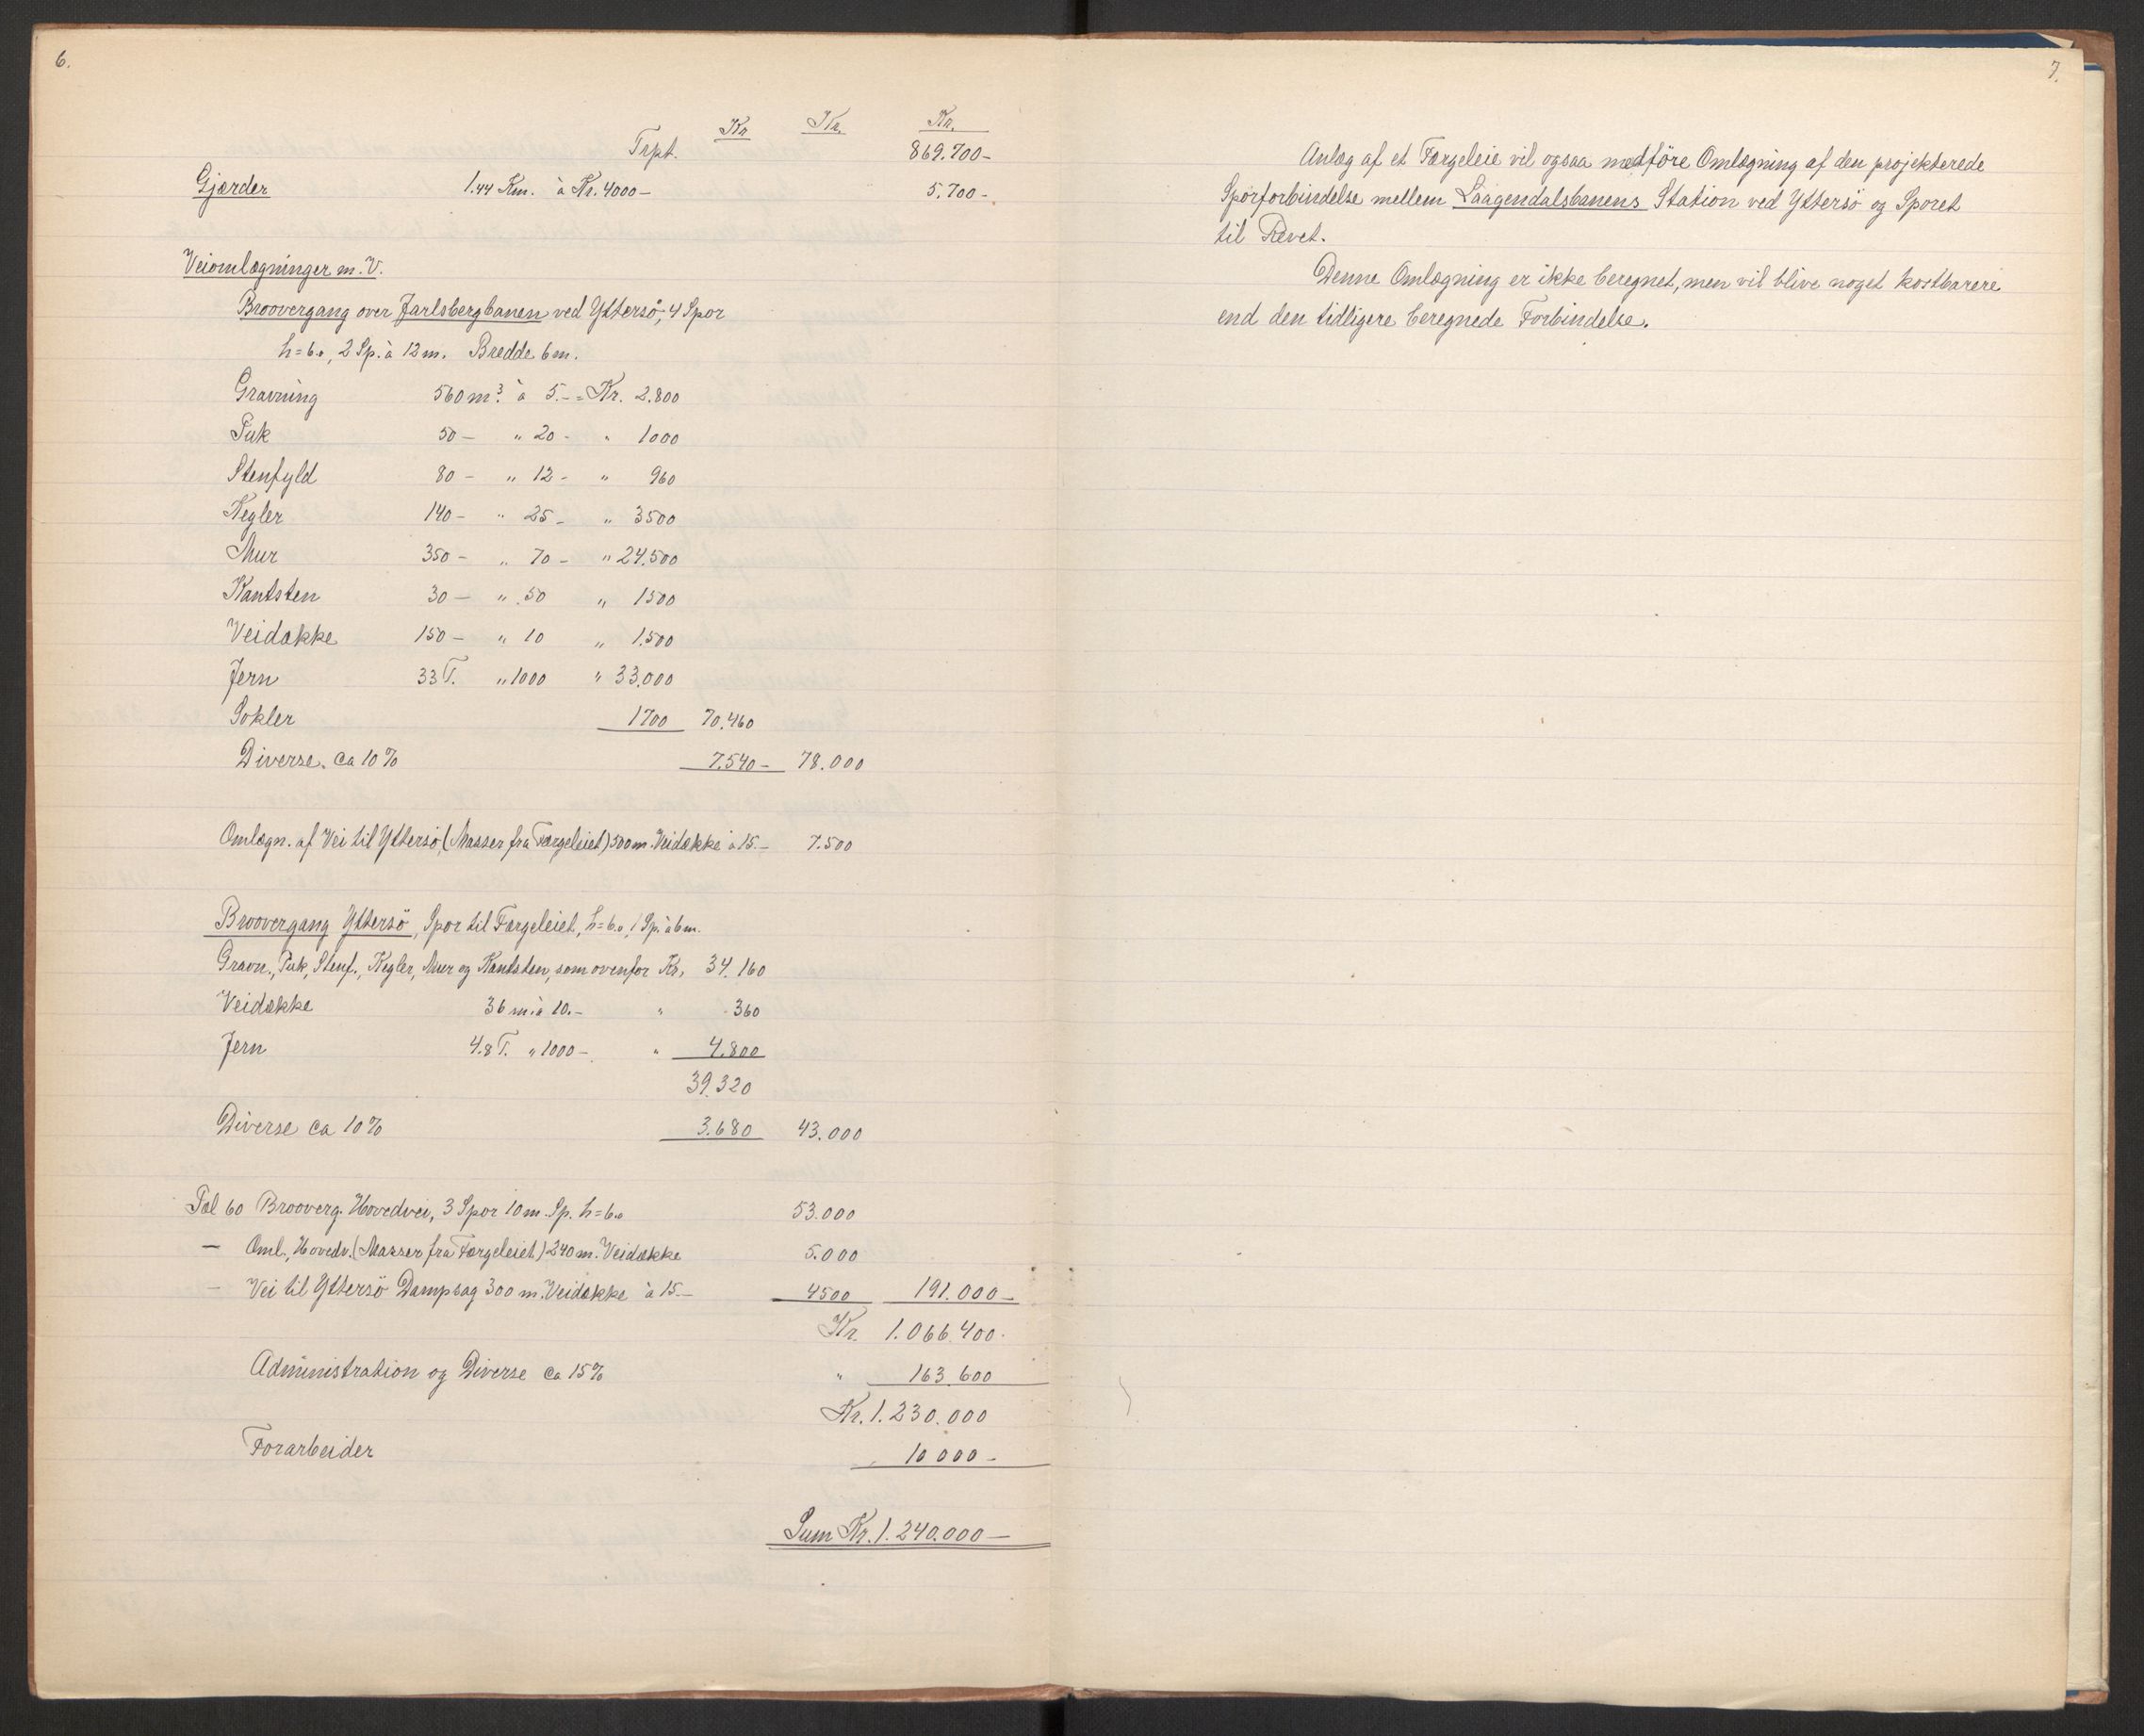 6.
Kr Kr. Kr.
Trpt. 869.700-
Gjærder 1.44 Km. à Kr. 4000- 5.700-
Veiomlægninger m.V.
Broovergang over Jarlsbergbanen ved Yttersö, 4 Spor
h=6.0, 2 Sp. à 12 m. Bredde 6 m.
Gravning 560 m³. à 5.- = Kr. 2.800
Puk 50- " 20- " 1000
Stenfyld 80- " 12- " 960
Kegler 140- " 25- " 3500
Mur 350- " 70- " 24.500
Kantsten 30- " 50 " 1500
Veidække 150- " 10 " 1.500
Jern 33 T. " 1000 " 33.000
Sokler 1700 70.460
Diverse. ca 10% 7.540- 78.000
Omlægn. af Vei til Yttersö (Masser fra Færgeleiet) 500 m. Veidække à 15.- 7.500
Broovergang Yttersö, Spor til Færgeleiet, h=6.0, 1 Sp. à 6 m.
Gravn., Puk, Stenf., Kegler, Mur og Kantsten, som ovenfor Kr. 34.160
Veidække 36 m. à 10.- " 360
Jern 4.8 T. " 1000- " 4.800
39.320
Diverse ca 10% 3.680 43.000
Pæl 60 Brooverg. Hovedvei, 3 Spor 10 m. Sp. h=6.0 53.000
- Oml. Hovedv. (Masser fra Færgeleiet) 240 m. Veidække 5.000
- Vei til Yttersö Dampsag 300 m. Veidække à 15.- 4500 191.000-
Kr. 1.066.400-
Administration og Diverse ca 15% " 163.600
Kr. 1.230.000
Forarbeider 10 000-
Sum Kr. 1.240.000-
7.
Anlæg af et Færgeleie vil ogsaa medföre Omlægning af den projekterede
Sporforbindelse mellem Laagendalsbanens Station ved Yttersö og Sporet
til Revet.
Denne Omlægning er ikke beregnet, men vil blive noget kostbarere
end den tidligere beregnede Forbindelse.